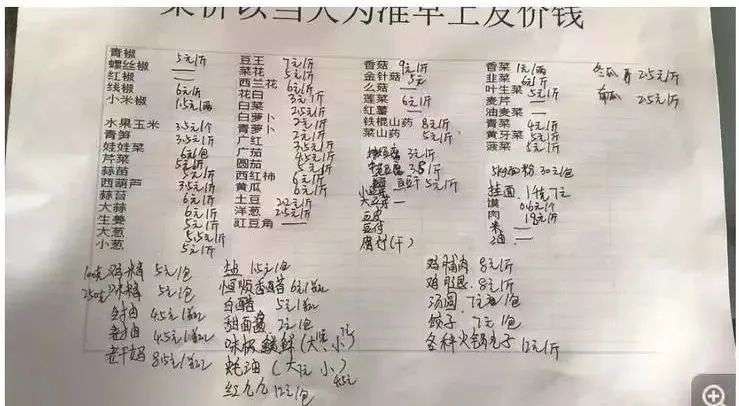 菜价以当天为准早上发价钱
青椒 5元1斤
螺丝椒 —
红椒 —
线椒 6元1斤
小米椒 1.5元1两
水果玉米 3.5元1个
青笋 3.5元1斤
娃娃菜 6元1包
芹菜 5元1斤
蒜苗 5元1斤
西葫芦 3.5元1斤
蒜苔 6元1斤
大蒜 6元1斤
生姜 5元1斤
大葱 5.5元1斤
小葱 5元1斤
豆王 7元1斤
菜花 5元1斤
西兰花 6元1斤
花白 3元1斤
白菜 2.5元1斤
白萝卜 2元1斤
青萝卜 2元1斤
广红 2元1斤
广茄 4.5元1斤
圆茄 6元1斤
西红柿 6元1斤
黄瓜 6元1斤
土豆 2.2元1斤
洋葱 2.5元1斤
豇豆角 —
香菇 9元1斤
金针菇 5元
么菇 —
莲菜 6元1斤
红薯
铁棍山药 8元1斤
菜山药 5元1斤
3元1斤
3.5元1斤
豆豆干 5元1斤
大豆芽 —
豆皮
豆付
腐付(干)
香菜 1元1两
韭菜 6元1斤
叶生菜 5元1斤
麦芹 —
油麦菜 —
青菜 4元1斤
黄牙菜 5元1斤
菠菜 5元1斤
粉 30元1包
挂面 1个 7元
馍 0.6元1个
肉 18元1斤
米 —
油 —
冬瓜 2.5元1斤
南瓜 2.5元1斤
100克 鸡精 5元1包
250克 味精 5元1包
生抽 4.5元1瓶
老抽 4.5元1瓶
老干妈 8.5元1瓶
盐 1.5元1包
恒顺香醋 6元1瓶
白醋 5元1瓶
甜面酱 2元1包
味极鲜 (大 小)
蚝油 (大 小)
红九九 12元1包
鸡脯肉 8元1斤
鸡腿 8元1斤
汤圆 7元1包
饺子 7元1包
各种火锅丸子 12元1斤